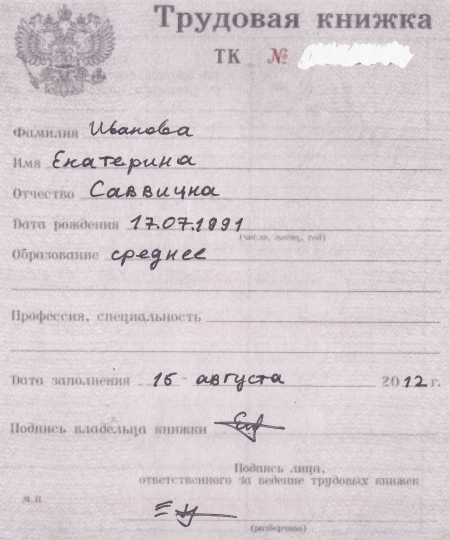 Трудовая книжка
ТК №
Фамилия Иванова
Имя Екатерина
Отчество Саввична
Дата рождения 17.07.1991
(число, месяц, год)
Образование среднее
Профессия, специальность
Дата заполнения 15 августа 2012 г.
Подпись владельца книжки
Подпись лица,
ответственного за ведение трудовых книжек
м.п.
(разборчиво)